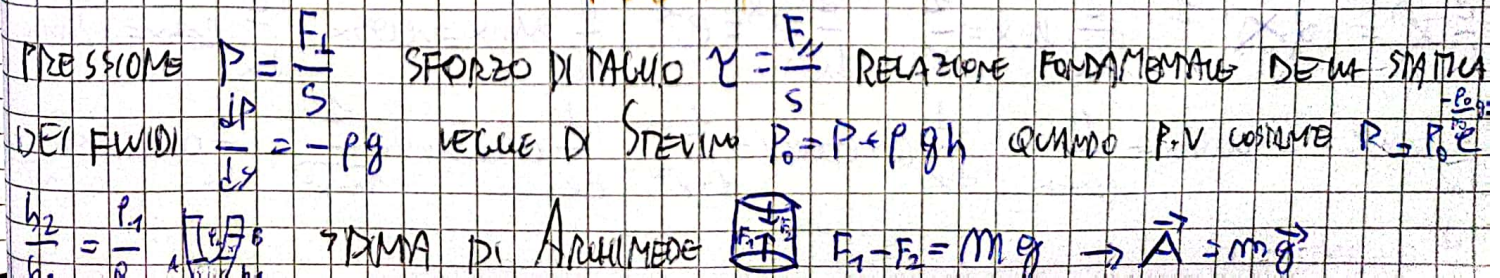 PRESSIONE P = F⊥/S SFORZO DI TAGLIO τ = F∥/S RELAZIONE FONDAMENTALE DELLA STATICA
DEI FLUIDI dP/dy = -ρg LEGGE DI STEVINO P₀ = P + ρgh QUANDO P.V COSTANTE
h₂/h₁ = ρ₁/ρ A B DI ARCHIMEDE F₁ F₂ F₁ - F₂ = mg → A⃗ = mg⃗